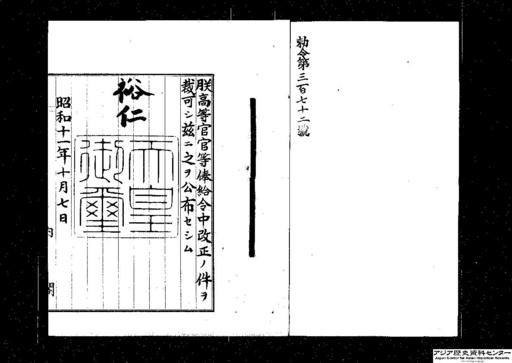 勅令第三百七十二號
朕高等官官等俸給令中改正ノ件ヲ
裁可シ茲ニ之ヲ公布セシム
裕仁
天皇
御璽
昭和十一年十月七日
内閣
アジア歴史資料センター
Japan Center for Asian Historical Records